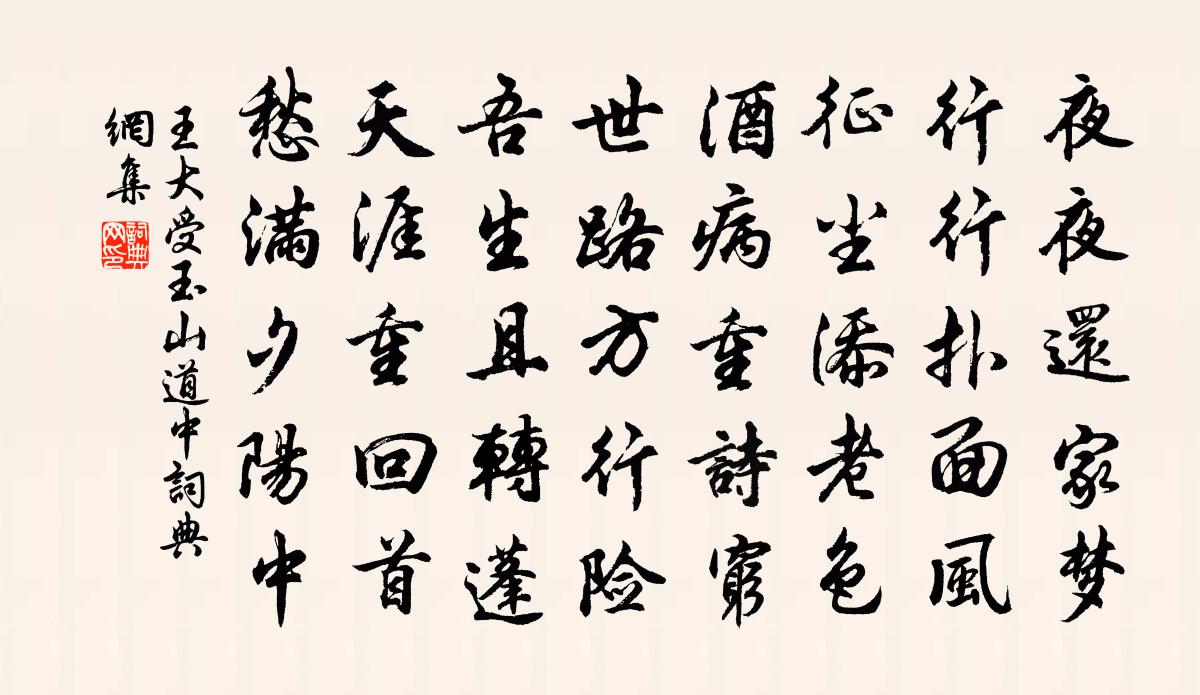 夜夜還家梦
行行扑面風
征尘添老色
酒病重詩窮
世路方行险
吾生且轉蓬
天涯重回首
愁满夕陽中
王大受玉山道中詞典
網集
詞典网印